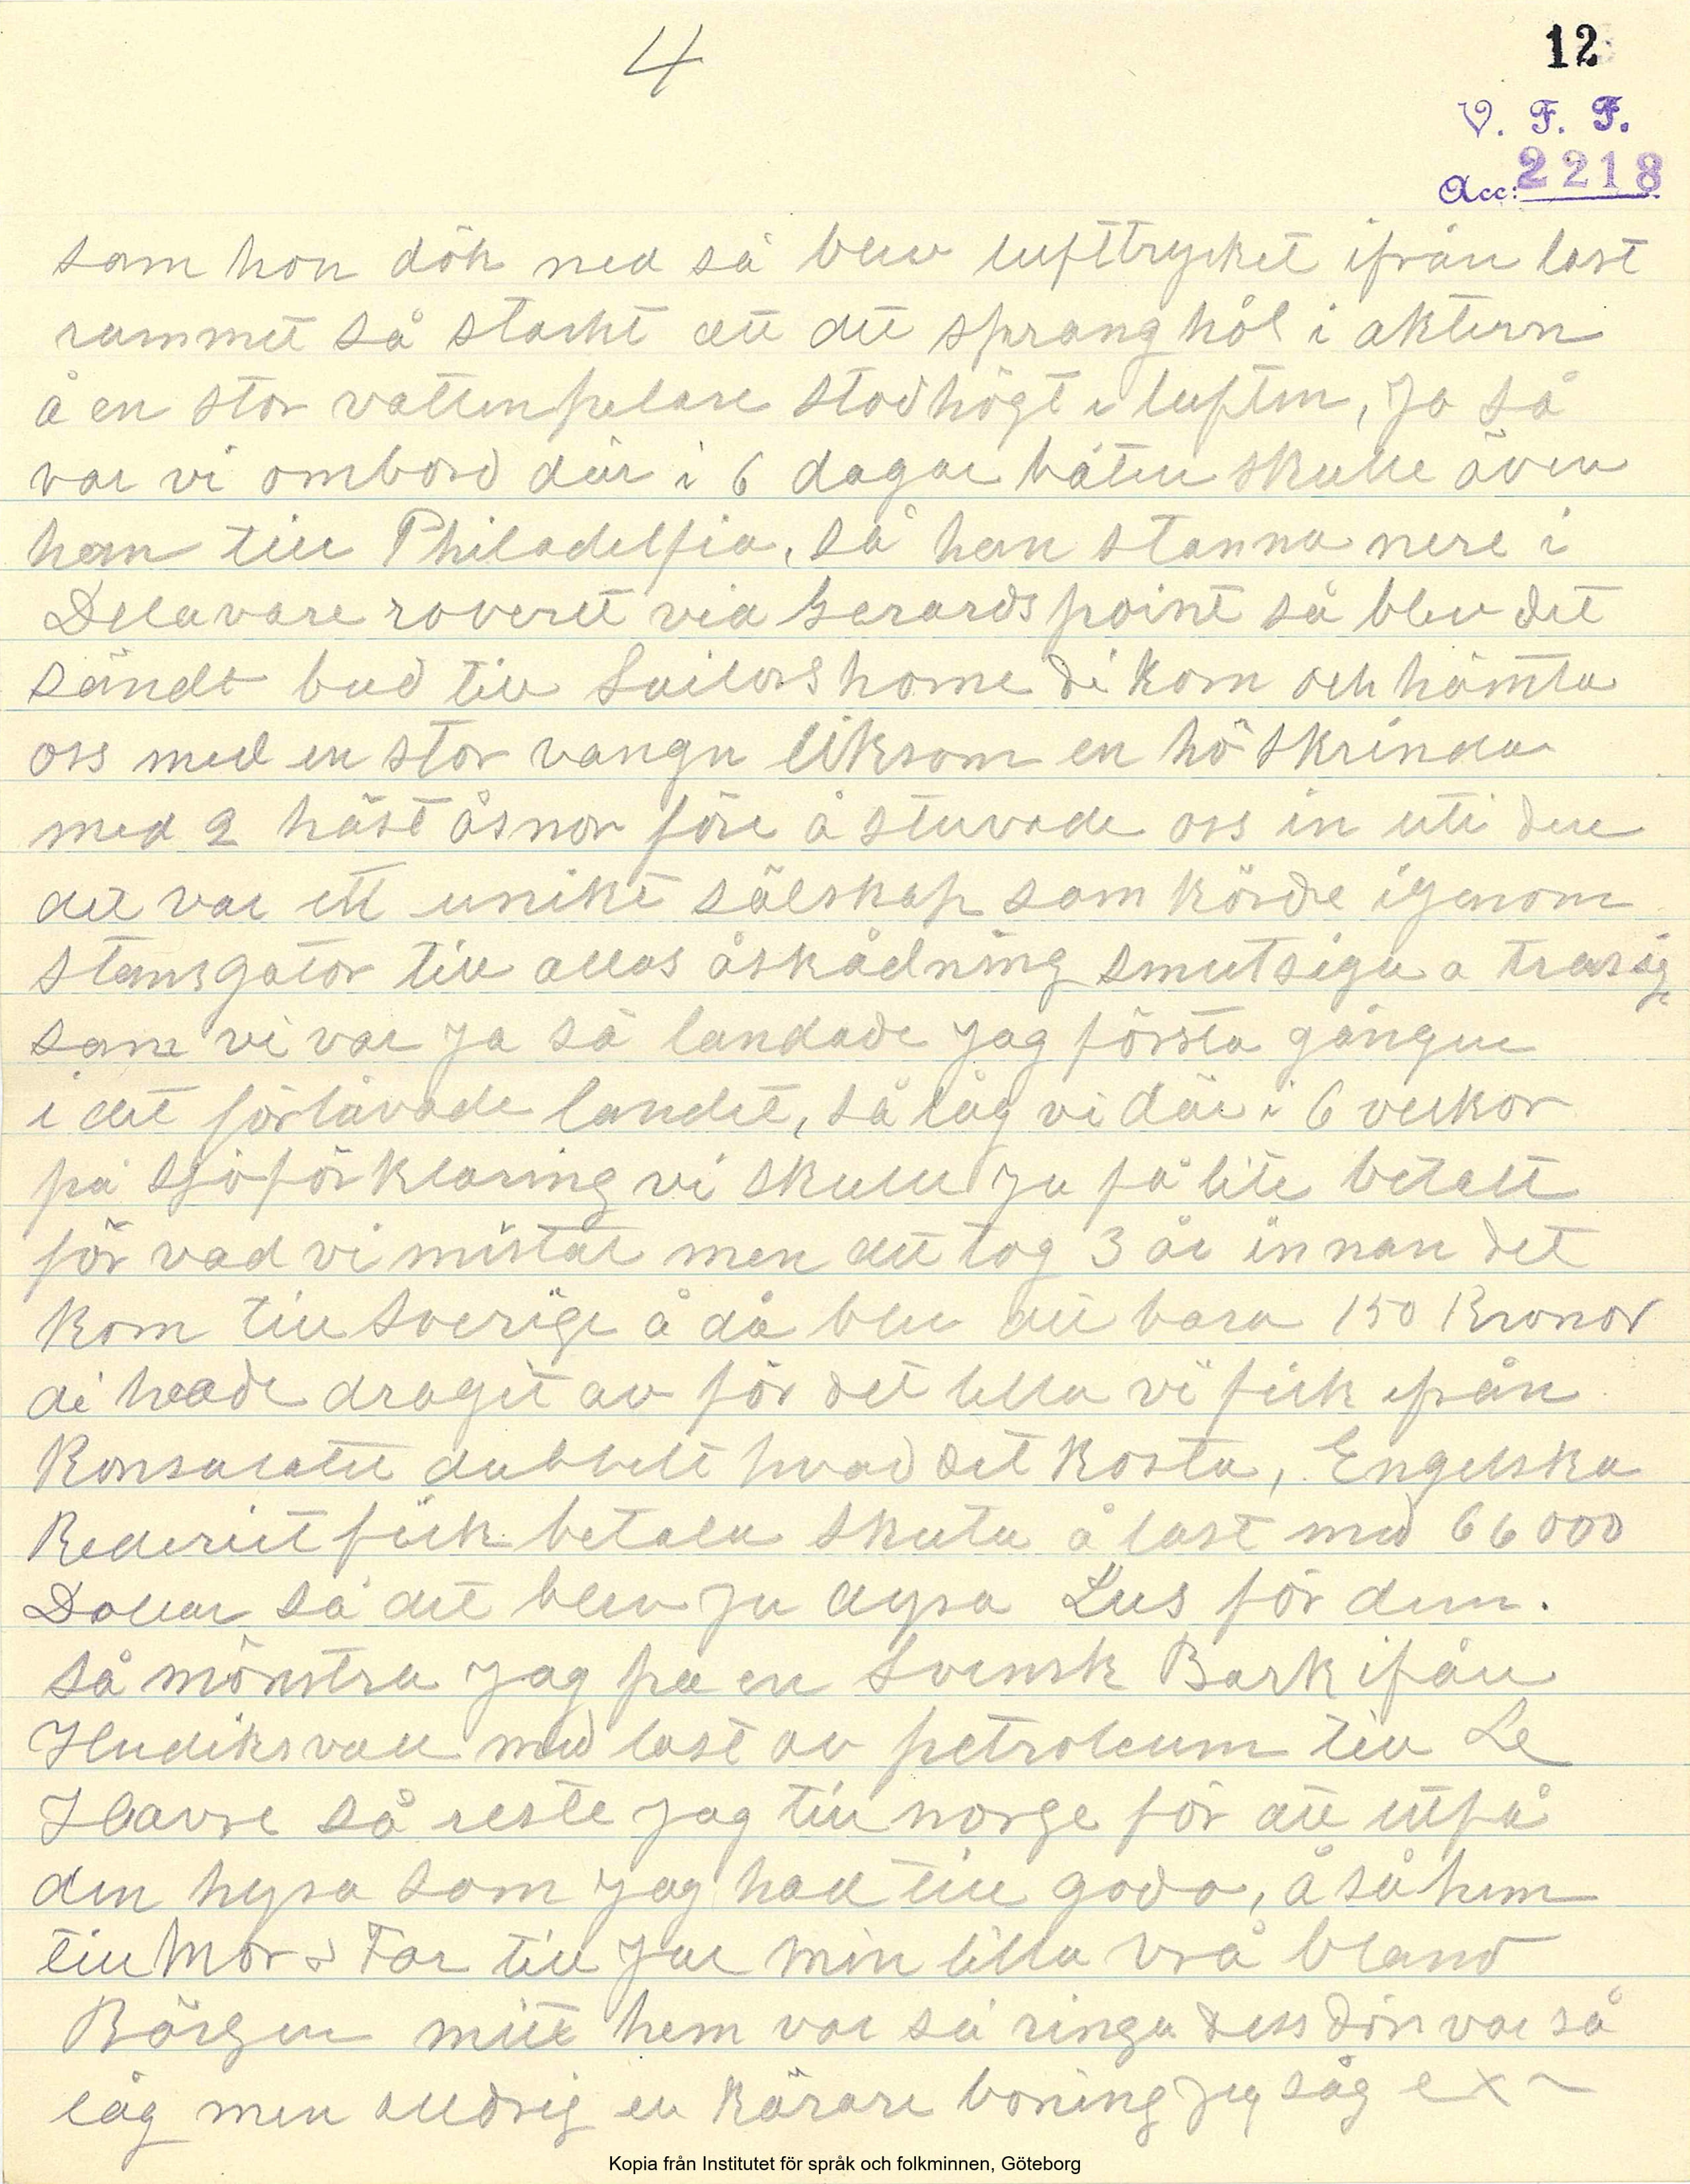 4
12
V. F. F.
Acc: 2218
som hon dök ned så blev lufttrycket ifrån last
rummet så starkt att det sprang hål i aktern
å en stor vattenpelare stod högt i luften, Ja så
var vi ombord där i 6 dagar båten skulle även
han till Philadelfia, så han stanna nere i
Delavare roveret vid Gerards point så blev det
sändt bud till Sailors home di kom och hämta
oss med en stor vangn liksom en hö skrinda
med 2 häståsnor före å stuvade oss in uti den
det var ett unikt sälskap som körde igenom
stans gator till allas åskådning smutsiga o trasig
som vi var ja så landade jag första gången
i det förlåvade landet, så låg vi där i 6 veckor
på sjöförklaring vi skulle ju få lite betalt
för vad vi mistat men det tog 3 år innan det
kom till Sverige å då blev det bara 150 Kronor
di hade dragit av för det lilla vi fick ifrån
Konsulatet dubbelt hvad det kosta, Engelska
Rederiet fick betala skuta å last med 66000
Dollar så det blev ju dyra Lus för dem.
så mönstra jag på en Svensk Bark ifån
Hudiksvall med last av petroleum till Le
Havre så reste jag till norge för att utfå
den hyra som jag had till godo, å så hem
till Mor & Far till min lilla vrå bland
Bärgen mitt hem var så ringa dess dörr var så
låg men alldrig en kärare boning jag såg
Kopia från Institutet för språk och folkminnen, Göteborg